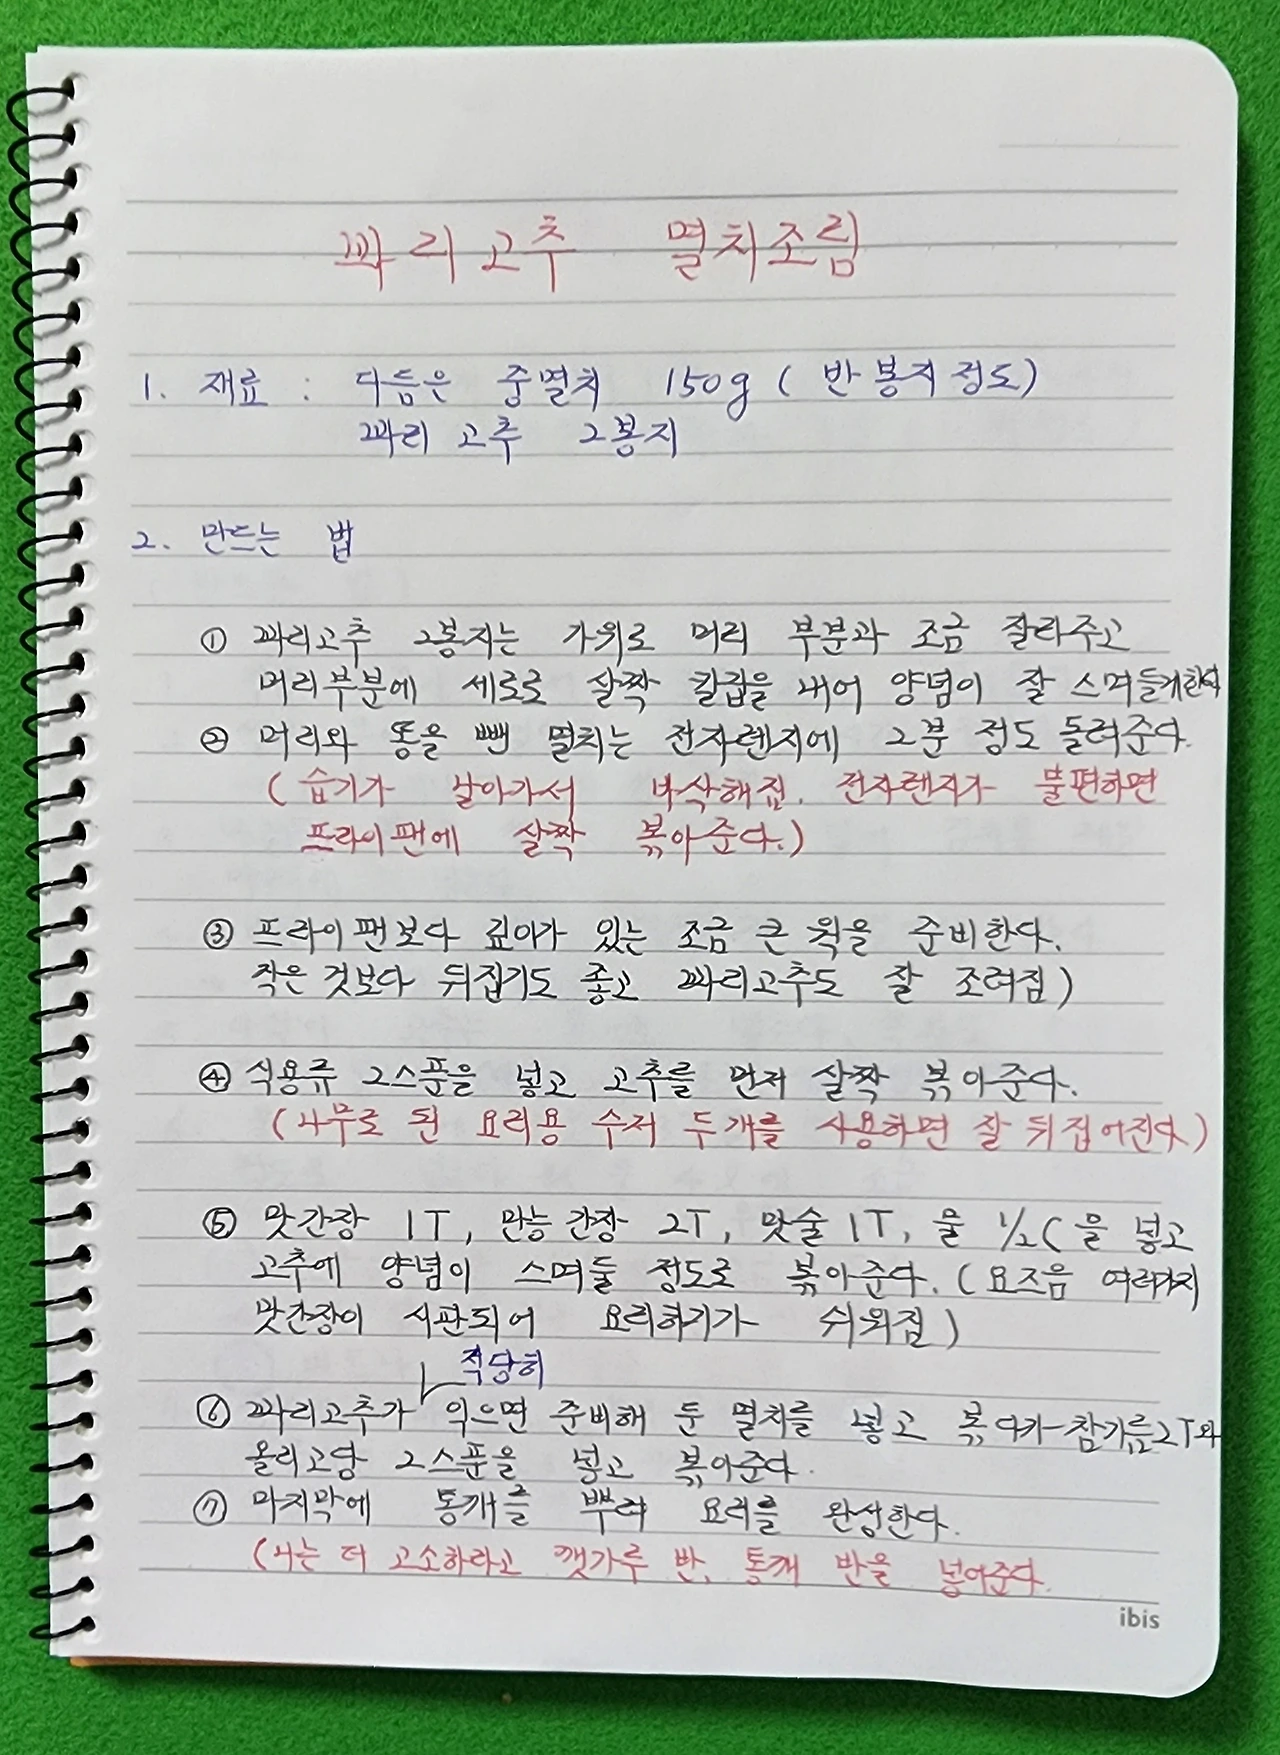 꽈리고추 멸치조림
1. 재료 : 다듬은 중멸치 150g ( 반 봉지 정도)
꽈리 고추 2봉지
2. 만드는 법
① 꽈리고추 2봉지는 가위로 머리 부분과 조금 잘라주고
머리부분에 세로로 살짝 칼집을 내어 양념이 잘 스며들게한다
② 머리와 똥을 뺀 멸치는 전자렌지에 2분 정도 돌려준다.
( 습기가 날아가서 바삭해짐. 전자렌지가 불편하면
프라이팬에 살짝 볶아준다.)
③ 프라이팬보다 깊이가 있는 조금 큰 웍을 준비한다.
작은 것보다 뒤집기도 좋고 꽈리고추도 잘 조려짐 )
④ 식용류 2스푼을 넣고 고추를 먼저 살짝 볶아준다.
( 나무로 된 요리용 수저 두개를 사용하면 잘 뒤집어진다 )
⑤ 맛간장 1T, 만능 간장 2T, 맛술 1T, 물 1/2C을 넣고
고추에 양념이 스며들 정도로 볶아준다. ( 요즈음 여러가지
맛간장이 시판되어 요리하기가 쉬워짐 )
적당히
⑥ 꽈리고추가 익으면 준비해 둔 멸치를 넣고 볶다가 참기름2T와
올리고당 2스푼을 넣고 볶아준다.
⑦ 마지막에 통깨를 뿌려 요리를 완성한다.
(나는 더 고소하라고 깻가루 반, 통깨 반을 넣어준다.
ibis